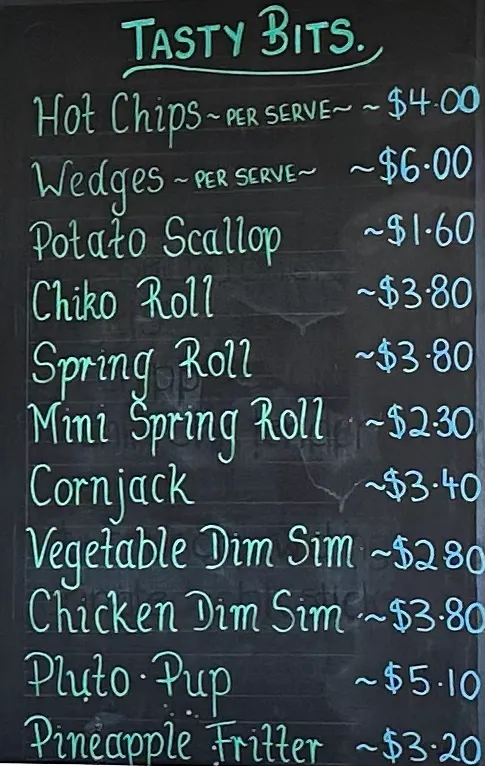 TASTY BITS.
Hot Chips ~ PER SERVE ~ ~ $4.00
Wedges ~ PER SERVE ~ ~ $6.00
Potato Scallop ~ $1.60
Chiko Roll ~ $3.80
Spring Roll ~ $3.80
Mini Spring Roll ~ $2.30
Cornjack ~ $3.40
Vegetable Dim Sim ~ $2.80
Chicken Dim Sim ~ $3.80
Pluto Pup ~ $5.10
Pineapple Fritter ~ $3.20